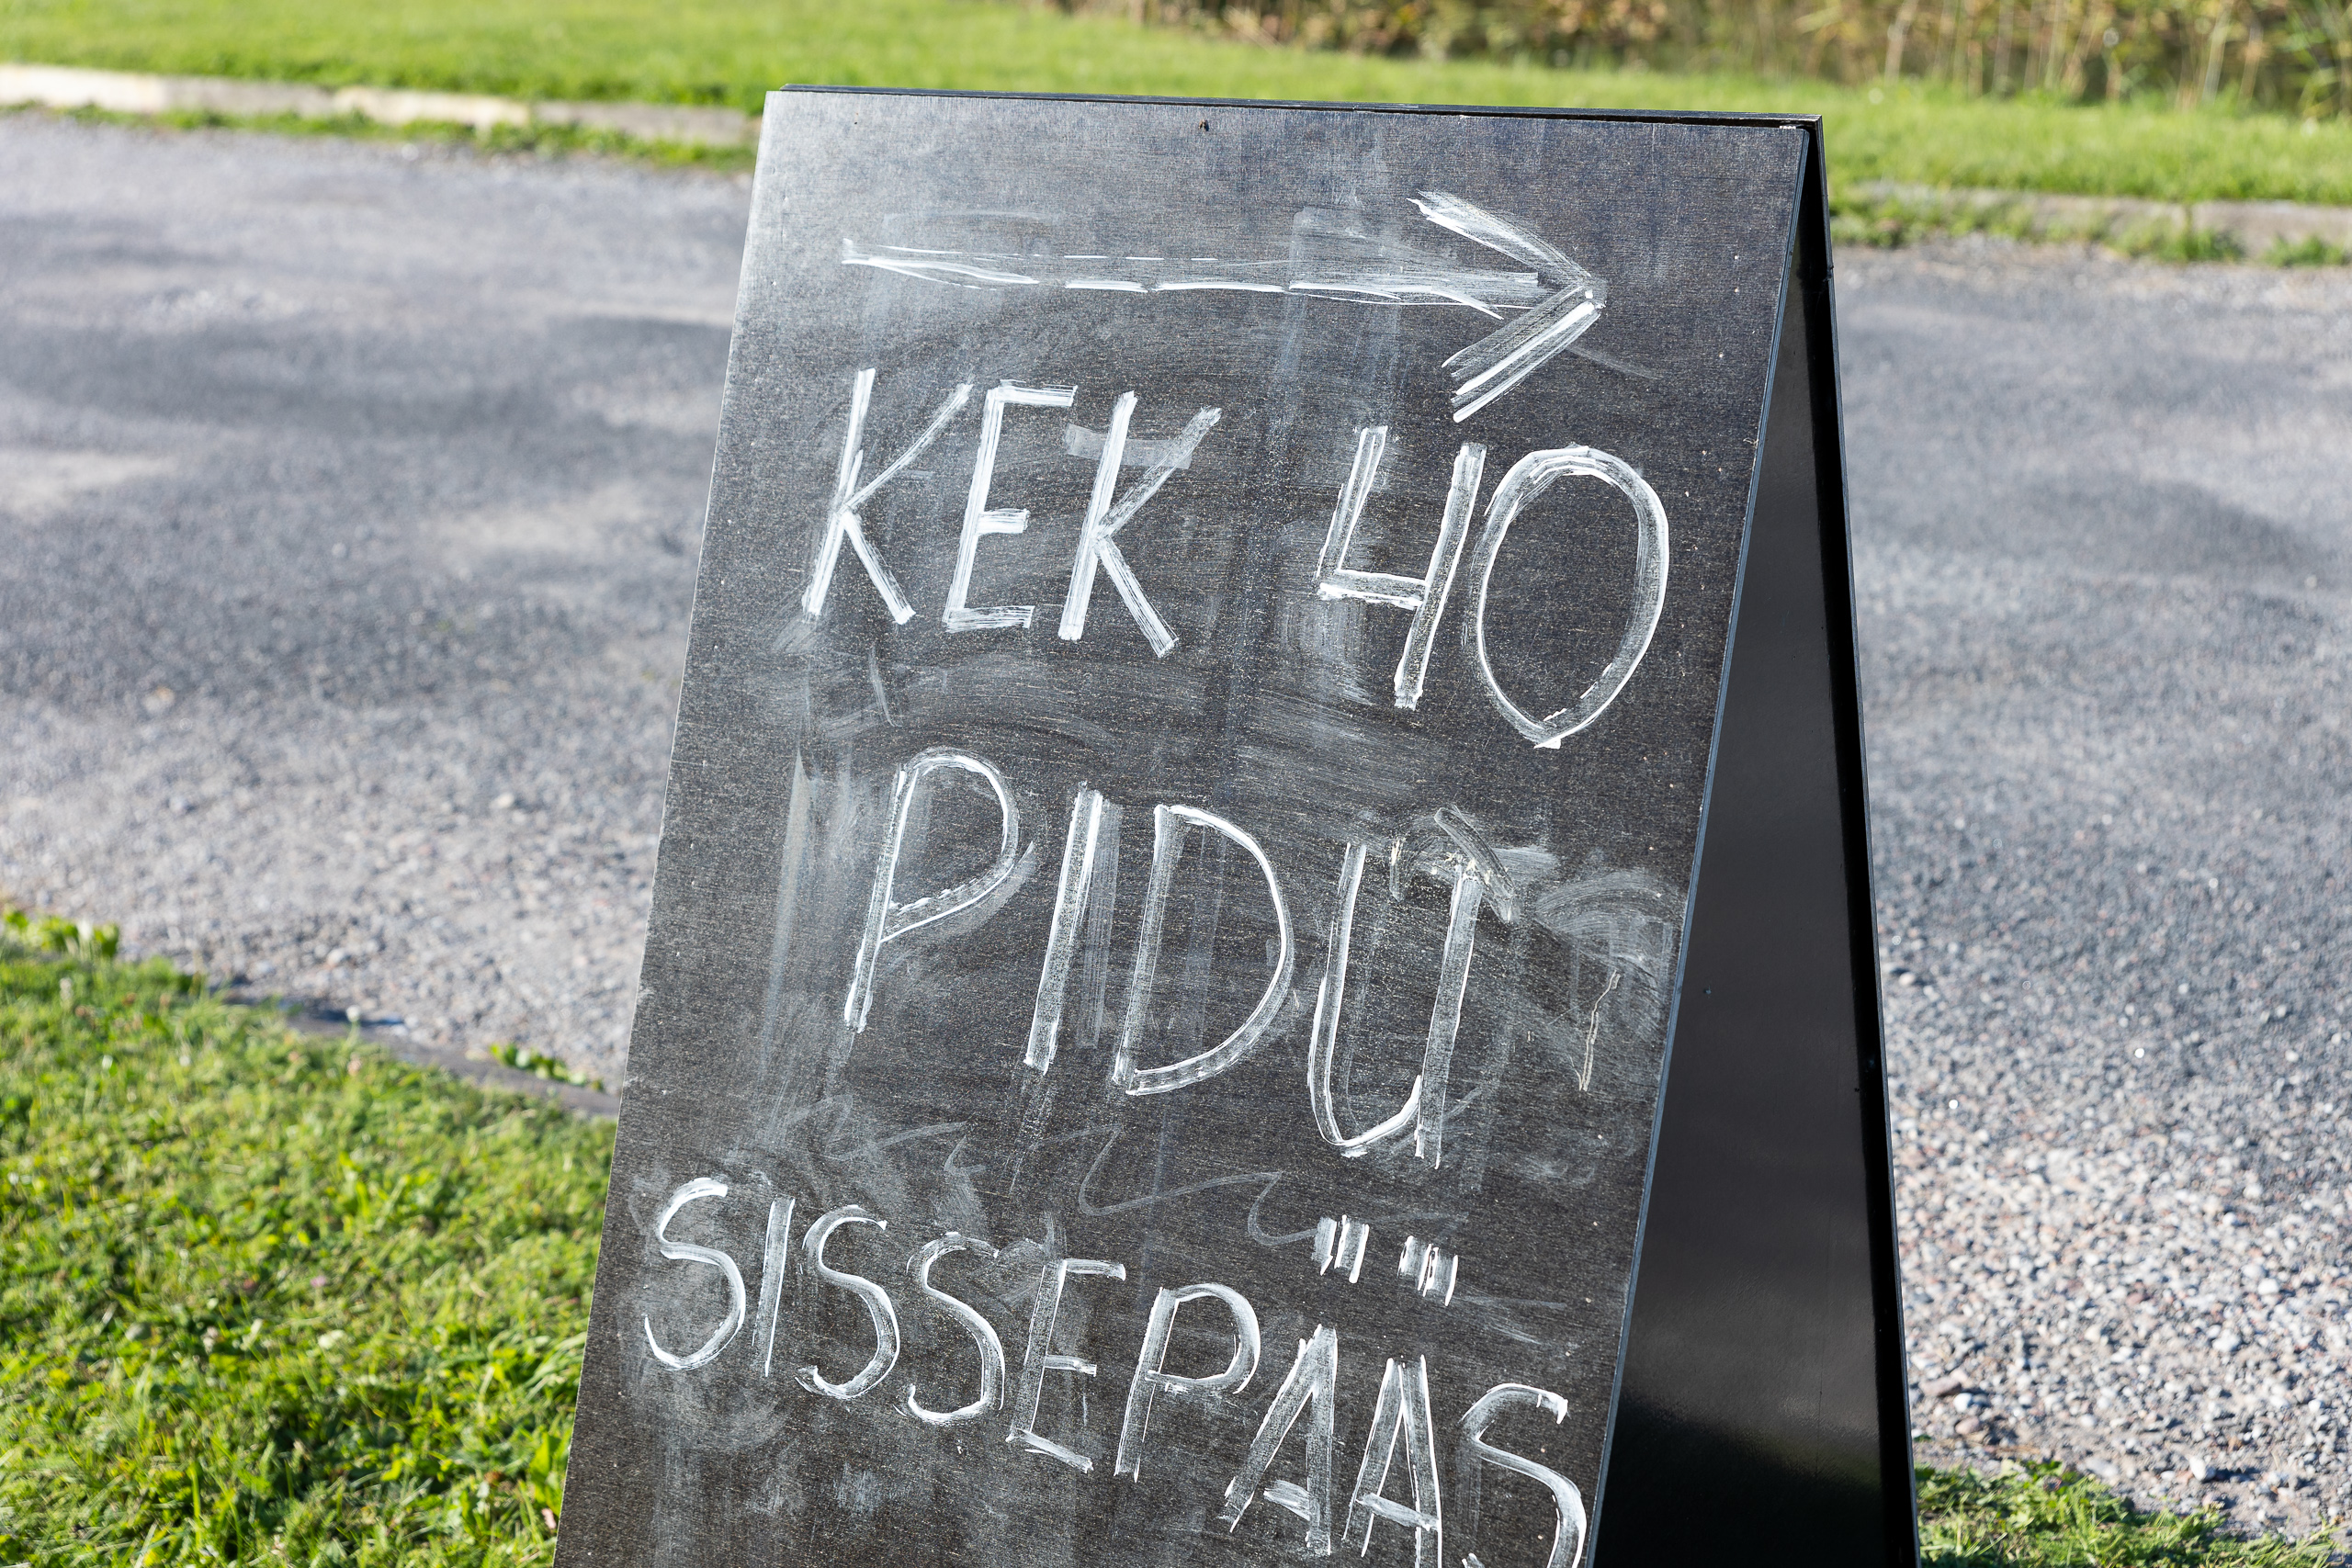 KEK 40
PIDU
SISSEPÄÄS